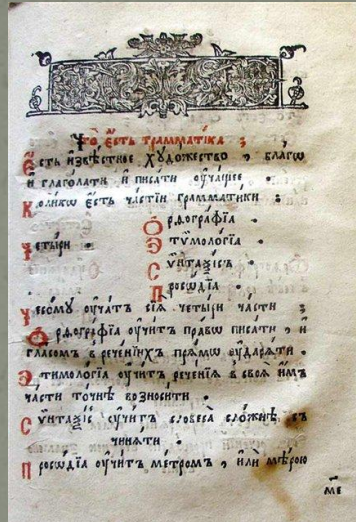 Что̀ є҆́сть грамматі́ка ;
Є҆́сть и҆звѣ́стное хꙋдо́жество , бла́гѡ
и҆ глаго́лати и҆ писа́ти ᲂу҆ча́щее .
Коли́кѡ є҆́сть часті́й грамма́тіки ;
Четы́ри .
Ѻ҆рѳогра́фїа .
Э҆тѷмоло́гїа .
Сѵ́нтаѯїсъ .
Просѡді́а .
Чесомꙋ̀ ᲂу҆́чатъ сїѧ̑ четы́ри ча́сти ;
Ѻ҆рѳогра́фїа ᲂу҆чи́тъ пра́вѡ писа́ти , и҆
гла́сомъ в рече́нїихъ прѧ́мѡ ᲂу҆дарѧ́ти .
Э҆тимоло́гїа ᲂу҆чи́тъ рече́нїѧ в своѧ̑ и҆̀мъ
ча́сти то́чнѣ возноси́ти .
Сѵ́нтаѯїсъ ᲂу҆чи́тъ словеса̀ сло́жнѣ съ
чинѧ́ти .
Просѡді́а ᲂу҆чи́тъ ме́тромъ , и҆лѝ мѣ́рою